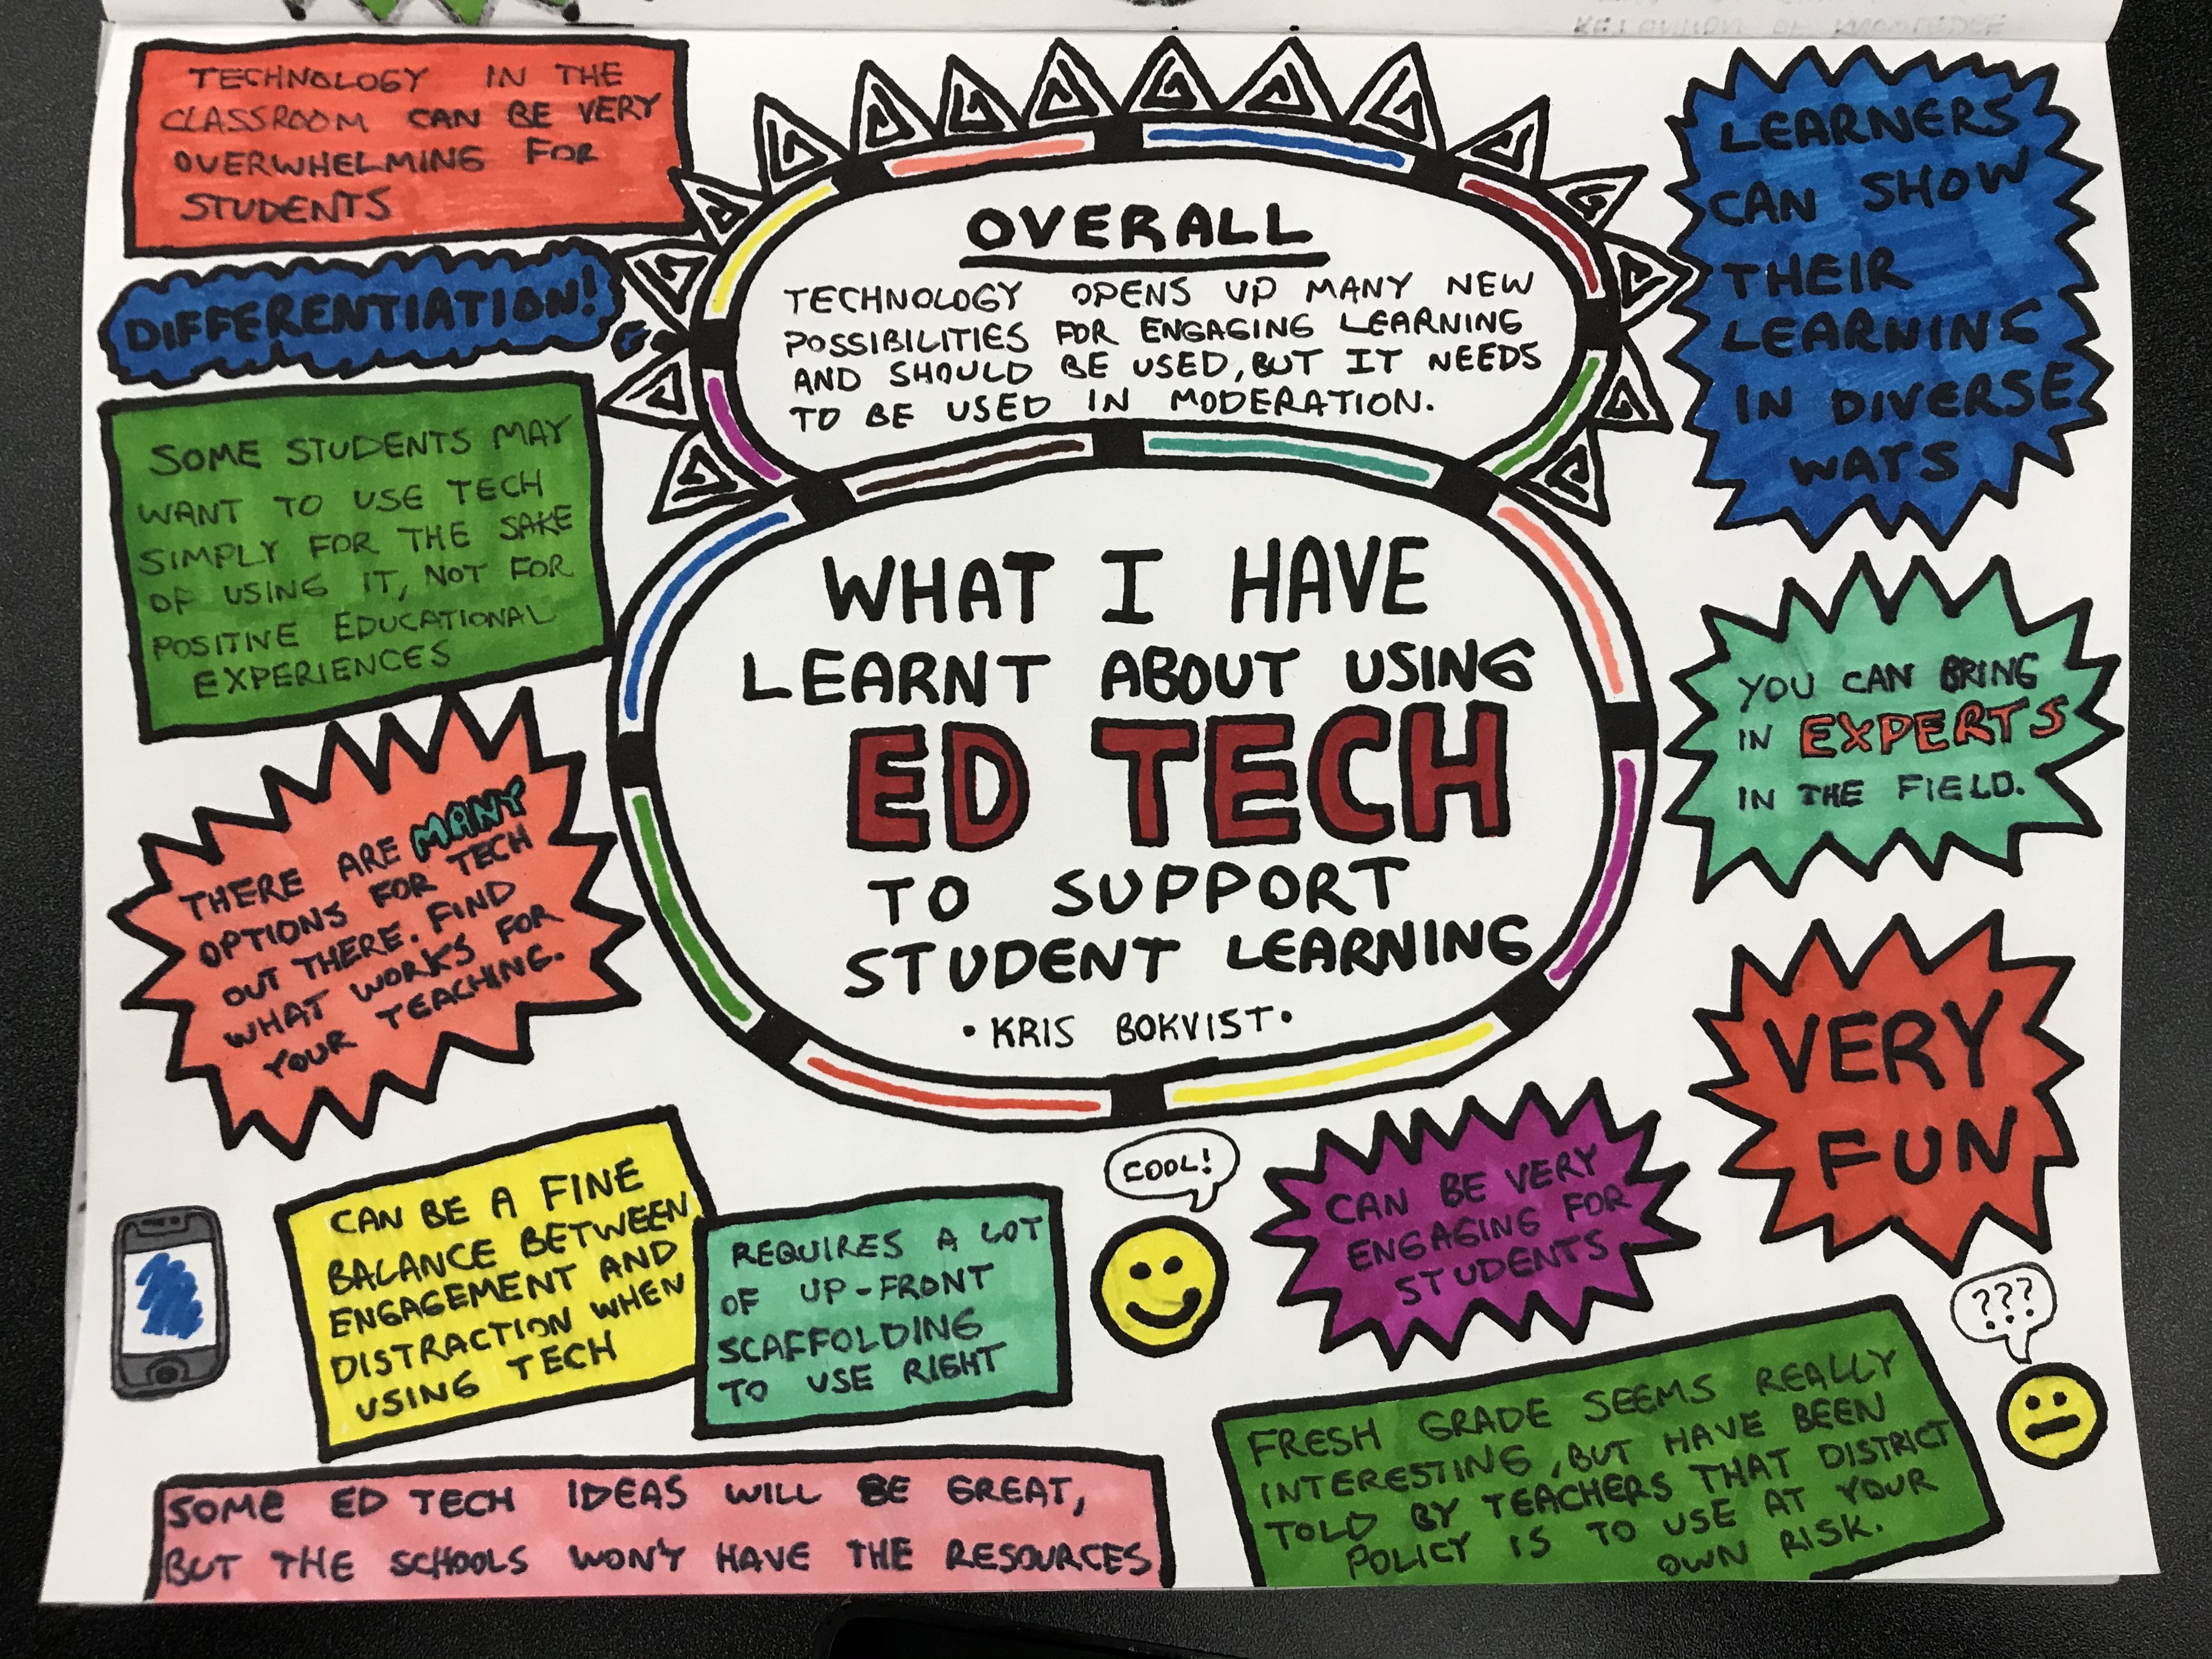 TECHNOLOGY IN THE
CLASSROOM CAN BE VERY
OVERWHELMING FOR
STUDENTS
DIFFERENTIATION!
SOME STUDENTS MAY
WANT TO USE TECH
SIMPLY FOR THE SAKE
OF USING IT, NOT FOR
POSITIVE EDUCATIONAL
EXPERIENCES
THERE ARE MANY
OPTIONS FOR TECH
OUT THERE. FIND
WHAT WORKS FOR
YOUR TEACHING.
OVERALL
TECHNOLOGY OPENS UP MANY NEW
POSSIBILITIES FOR ENGAGING LEARNING
AND SHOULD BE USED, BUT IT NEEDS
TO BE USED IN MODERATION.
WHAT I HAVE
LEARNT ABOUT USING
ED TECH
TO SUPPORT
STUDENT LEARNING
• KRIS BOKVIST •
LEARNERS
CAN SHOW
THEIR
LEARNING
IN DIVERSE
WAYS
YOU CAN BRING
IN EXPERTS
IN THE FIELD.
VERY
FUN
CAN BE A FINE
BALANCE BETWEEN
ENGAGEMENT AND
DISTRACTION WHEN
USING TECH
REQUIRES A LOT
OF UP-FRONT
SCAFFOLDING
TO USE RIGHT
COOL!
CAN BE VERY
ENGAGING FOR
STUDENTS
???
SOME ED TECH IDEAS WILL BE GREAT,
BUT THE SCHOOLS WON'T HAVE THE RESOURCES
FRESH GRADE SEEMS REALLY
INTERESTING, BUT HAVE BEEN
TOLD BY TEACHERS THAT DISTRICT
POLICY IS TO USE AT YOUR
OWN RISK.